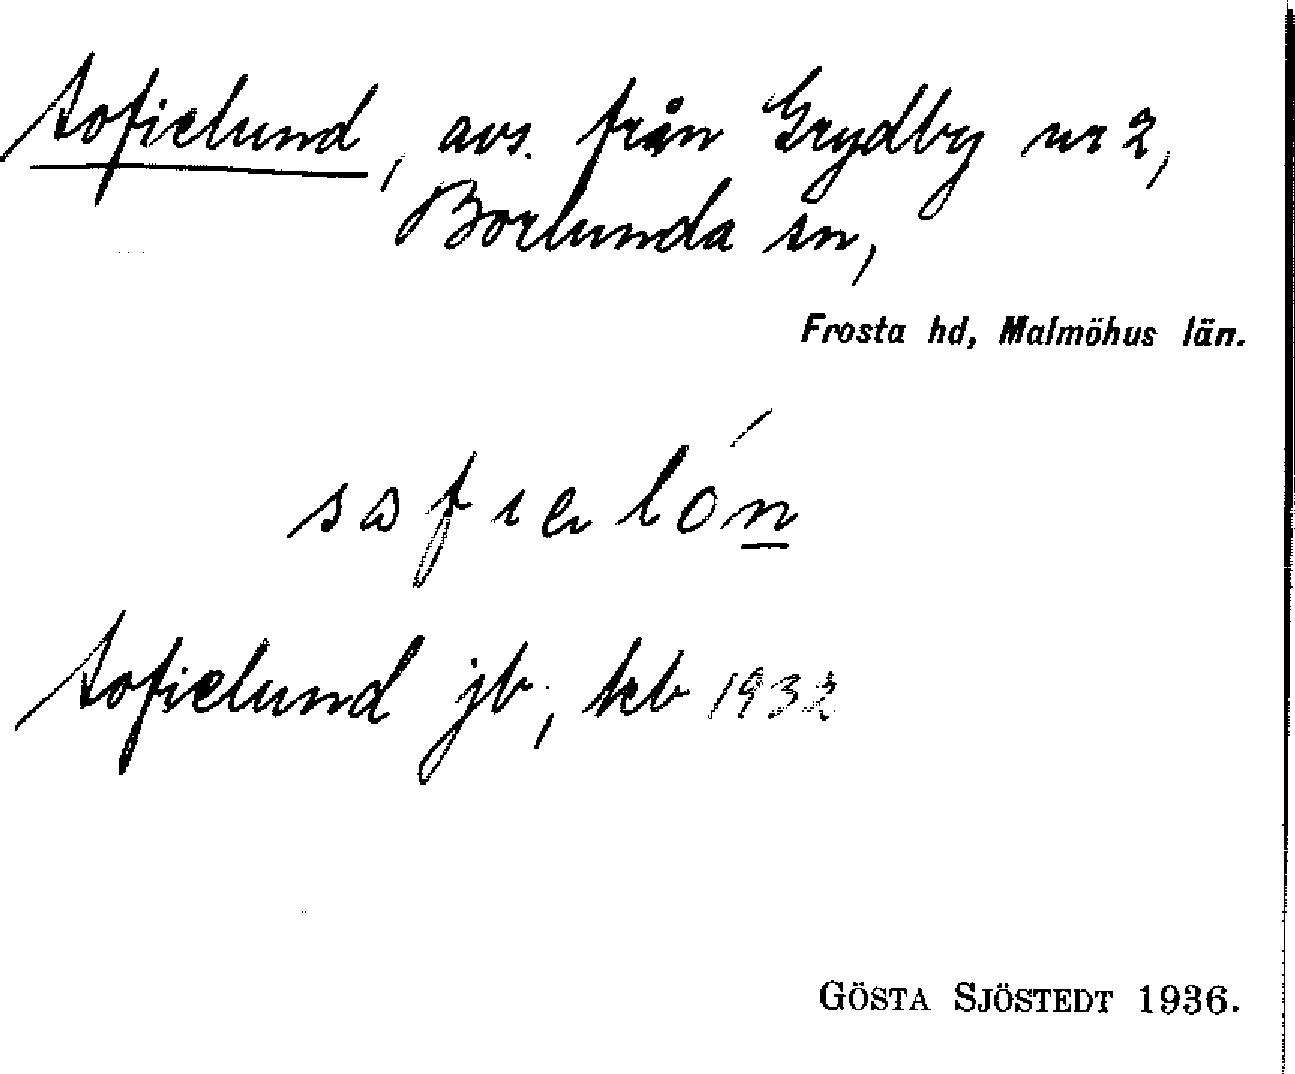 Sofielund, avs. från Grydby nr 2,
Borlunda sn,
Frosta hd, Malmöhus län.
sofielón
Sofielund jb, kb 1932
GÖSTA SJÖSTEDT 1936.